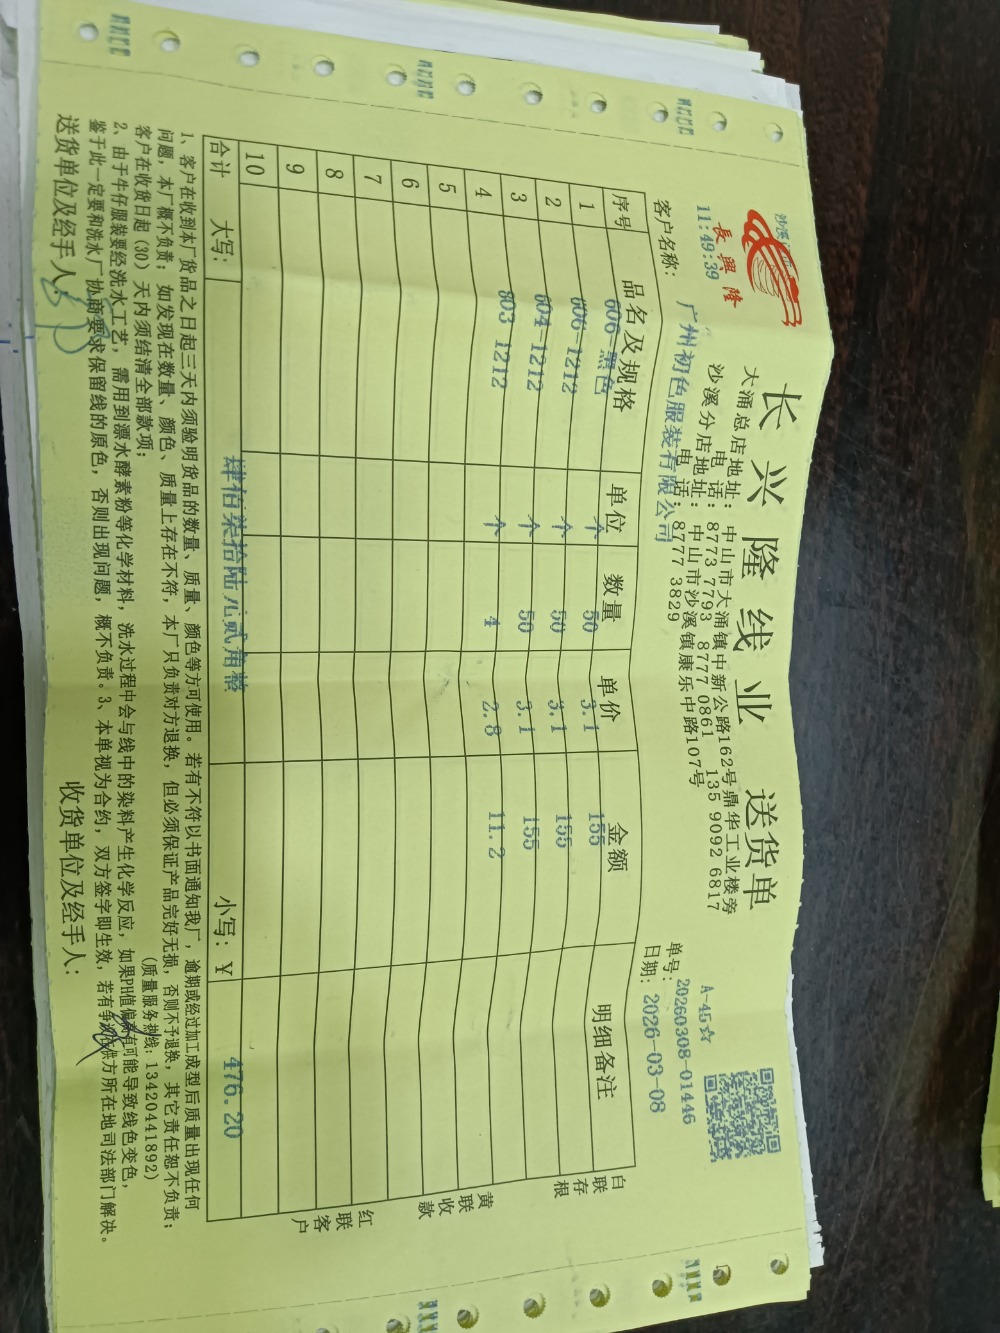 長興隆
11:49:39
长兴隆线业 送货单
大涌总店地址: 中山市大涌镇中新公路162号鼎华工业楼旁
电话: 8773 7793 8777 0861 135 9092 6817
沙溪分店地址: 中山市沙溪镇康乐中路107号
电话: 8777 3829
A-45☆
单号: 20260308-01446
客户名称: 广州初色服装有限公司
日期: 2026-03-08
序号 品名及规格 单位 数量 单价 金额 明细备注
1 606-黑色 个 50 3.1 155
2 606-1212 个 50 3.1 155
3 604-1212 个 50 3.1 155
4 803 1212 个 4 2.8 11.2
5
6
7
8
9
10
合计 大写: 肆佰柒拾陆元贰角整 小写: ¥ 476.20
白联存根
黄联收款
红联客户
1、客户在收到本厂货品之日起三天内须验明货品的数量、质量、颜色等方可使用。若有不符以书面通知我厂，逾期或经过加工成型后质量出现任何
问题，本厂概不负责；如发现在数量、颜色、质量上存在不符，本厂只负责对方退换，但必须保证产品完好无损，否则不予退换，其它责任恕不负责；
客户在收货日起(30)天内须结清全部款项； (质量服务热线: 13420441892)
2、由于牛仔服装要经洗水工艺，需用到漂水酵素粉等化学材料，洗水过程中会与线中的染料产生化学反应，如果PH值偏高有可能导致线色变色，
鉴于此一定要和洗水厂协商要求保留线的原色，否则出现问题，概不负责。3、本单视为合约，双方签字即生效，若有争议供方所在地司法部门解决。
送货单位及经手人: 收货单位及经手人: